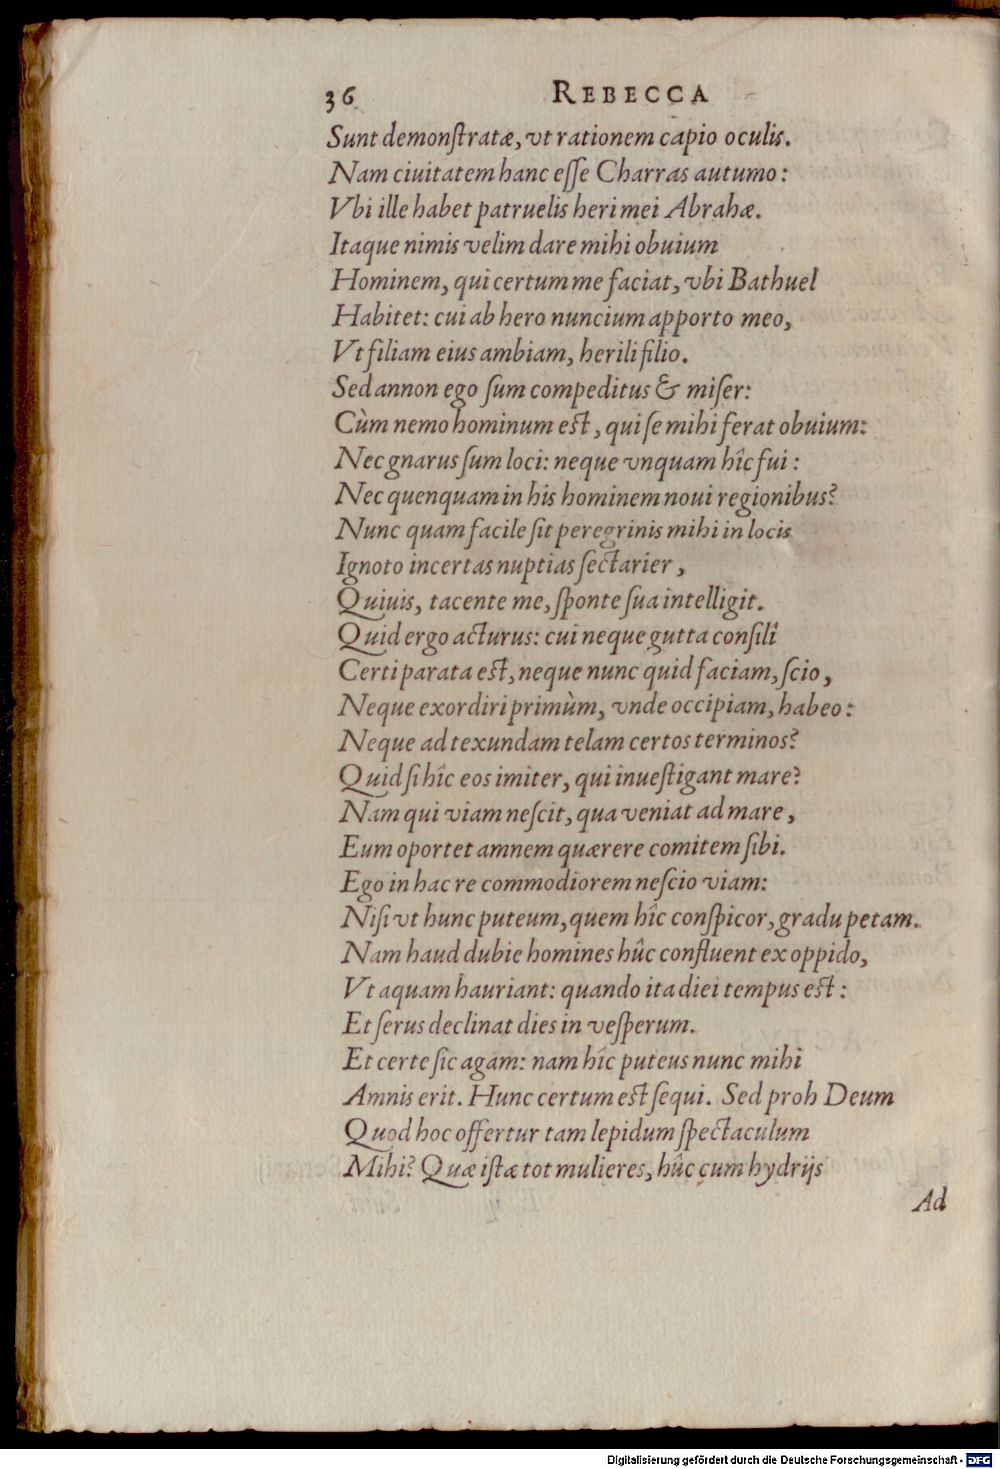 36 REBECCA
Sunt demonſtratæ, vt rationem capio oculis.
Nam ciuitatem hanc eſſe Charras autumo:
Vbi ille habet patruelis heri mei Abrahæ.
Itaque nimis velim dare mihi obuium
Hominem, qui certum me faciat, vbi Bathuel
Habitet: cui ab hero nuncium apporto meo,
Vt filiam eius ambiam, herili filio.
Sed annon ego ſum compeditus & miſer:
Cùm nemo hominum eſt, qui ſe mihi ferat obuium:
Nec gnarus ſum loci: neque vnquam hîc fui:
Nec quenquam in his hominem noui regionibus?
Nunc quam facile ſit peregrinis mihi in locis
Ignoto incertas nuptias ſectarier,
Quiuis, tacente me, ſponte ſua intelligit.
Quid ergo acturus: cui neque gutta conſilî
Certi parata eſt, neque nunc quid faciam, ſcio,
Neque exordiri primùm, vnde occipiam, habeo:
Neque ad texundam telam certos terminos?
Quid ſi hîc eos imiter, qui inueſtigant mare?
Nam qui viam neſcit, qua veniat ad mare,
Eum oportet amnem quærere comitem ſibi.
Ego in hac re commodiorem neſcio viam:
Niſi vt hunc puteum, quem hîc conſpicor, gradu petam.
Nam haud dubie homines hûc confluent ex oppido,
Vt aquam hauriant: quando ita diei tempus eſt:
Et ſerus declinat dies in veſperum.
Et certe ſic agam: nam hîc puteus nunc mihi
Amnis erit. Hunc certum eſt ſequi. Sed proh Deum
Quod hoc offertur tam lepidum ſpectaculum
Mihi? Quæ iſtæ tot mulieres, hûc cum hydrijs
Ad
Digitalisierung gefördert durch die Deutsche Forschungsgemeinschaft - DFG